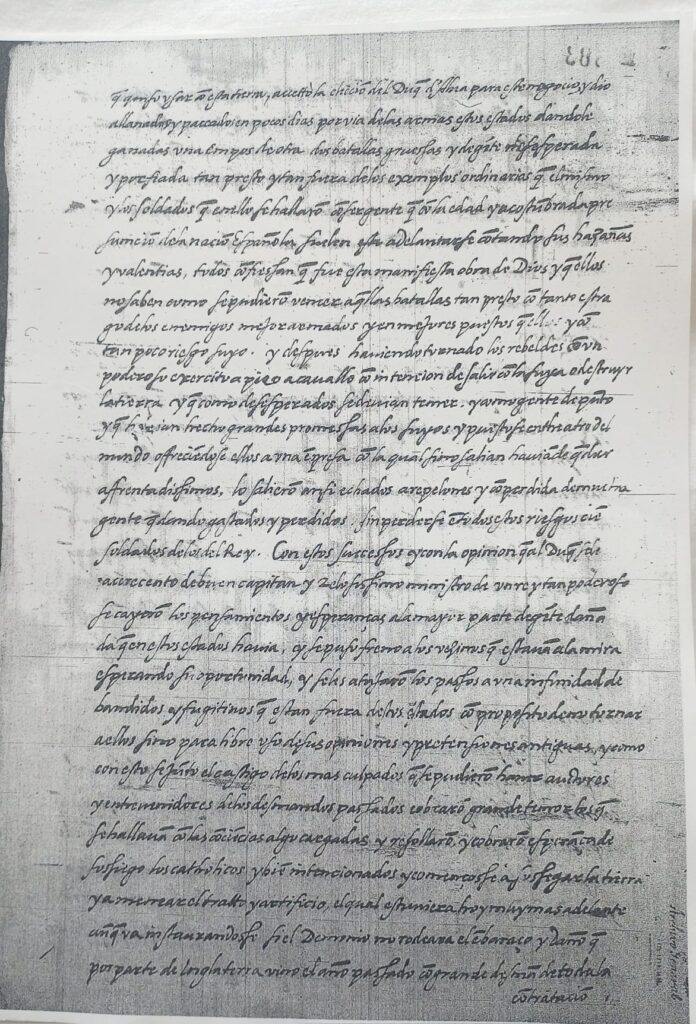 q̃ quiso usar cõ esta tierra, accettò la electiõ del Duq̃ d'Alba para este negocio, y dio
allanados y paccados en pocos dias por via de las armas estos estados dandole
ganadas una em pos de otra dos batallas gruessas y de gẽte desesperada
y porfiada tan presto y tan fuera de los exemplos ordinarios q̃ el mismo
y los soldados q̃ en ello se hallarõ cõ ser gente q̃ cõ la edad y acostũbrada pre
sunciõ de la naciõ Española suelen adelantarse cõtando sus hazañas
y valentias, todos cõfiessan q̃ fue esta manifiesta obra de Dios y q̃ ellos
no saben como se pudierõ vencer aq̃llas batallas tan presto cõ tanto estra
go de los enemigos mejor armados y en mejores puestos q̃ ellos y cõ
tan poco riesgo suyo. y despues haviendo tornado los rebeldes cõ un
poderoso exercito a pie o a cavallo cõ intencion de salir cõ la suya o destruyr
la tierra y q̃ como desesperados se devian temer. y como gente de pũto
y q̃ havian hecho grandes promessas a los suyos y puestose en theatro del
mundo offreciẽdose ellos a una ẽpresa cõ la qual si no salian haviã de q̃dar
affrentadissimos, los salierõ ansi echados a repelones y cõ perdida de mucha
gente q̃dando gastados y perdidos sin perderse ẽ todos estos riesgos ciẽ
soldados de los del Rey. Con estos successos y con la opinion q̃ al Duq̃ se le
accrecento de buen capitan y zelosissimo ministro de un rey tan poderoso
se cayerõ los pensamientos y esperanças a la mayor parte de gẽte daña
da q̃ en estos estados havia, y se puso freno a los vezinos q̃ estavã a la mira
esperando su oportunidad, y se les atajarõ los passos a una infinidad de
bandidos y fugitivos q̃ estan fuera destos estados cõ proposito de no tornar
a ellos sino para libre uso de sus opiniones y pretensiones antiguas, y como
con esto se jũtò el castigo de los mas culpados q̃ se pudierõ haver auctores
y entrevenidores de los desmandos passados cobrarõ grande temor los q̃
se hallavã cõ las cõciẽcias algo cargadas y resollarõ, y cobrarõ esperãça de
sosiego los catholicos y biẽ intencionados y començose a sosegar la tierra
y a menear el tratto y artificio, el qual estuviera hoy muy mas adelante
aũq̃ va instaurandose si el Demonio no rodeara el ẽbaraço y daño q̃
por parte de Inglaterra vino el año passado cõ grande de toda la
cõtrataciõ